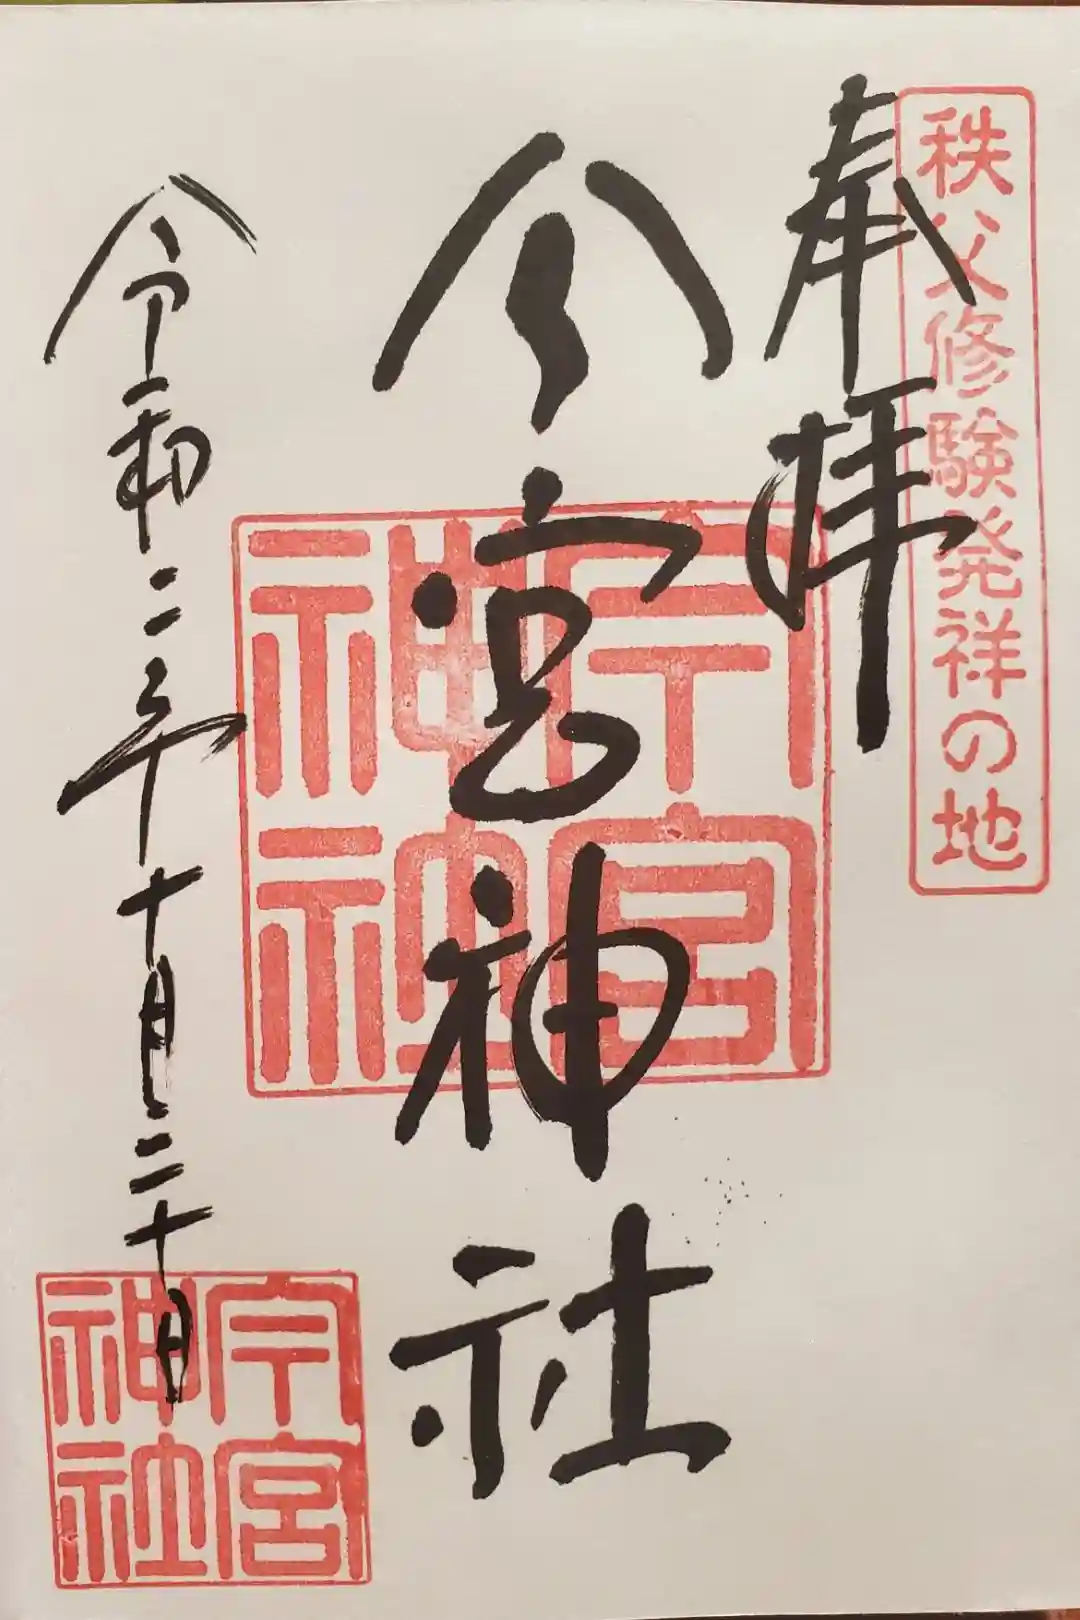 秩父修験発祥の地
奉拝
今宮神社
今宮
神社
令和二年十月三十日
今宮
神社